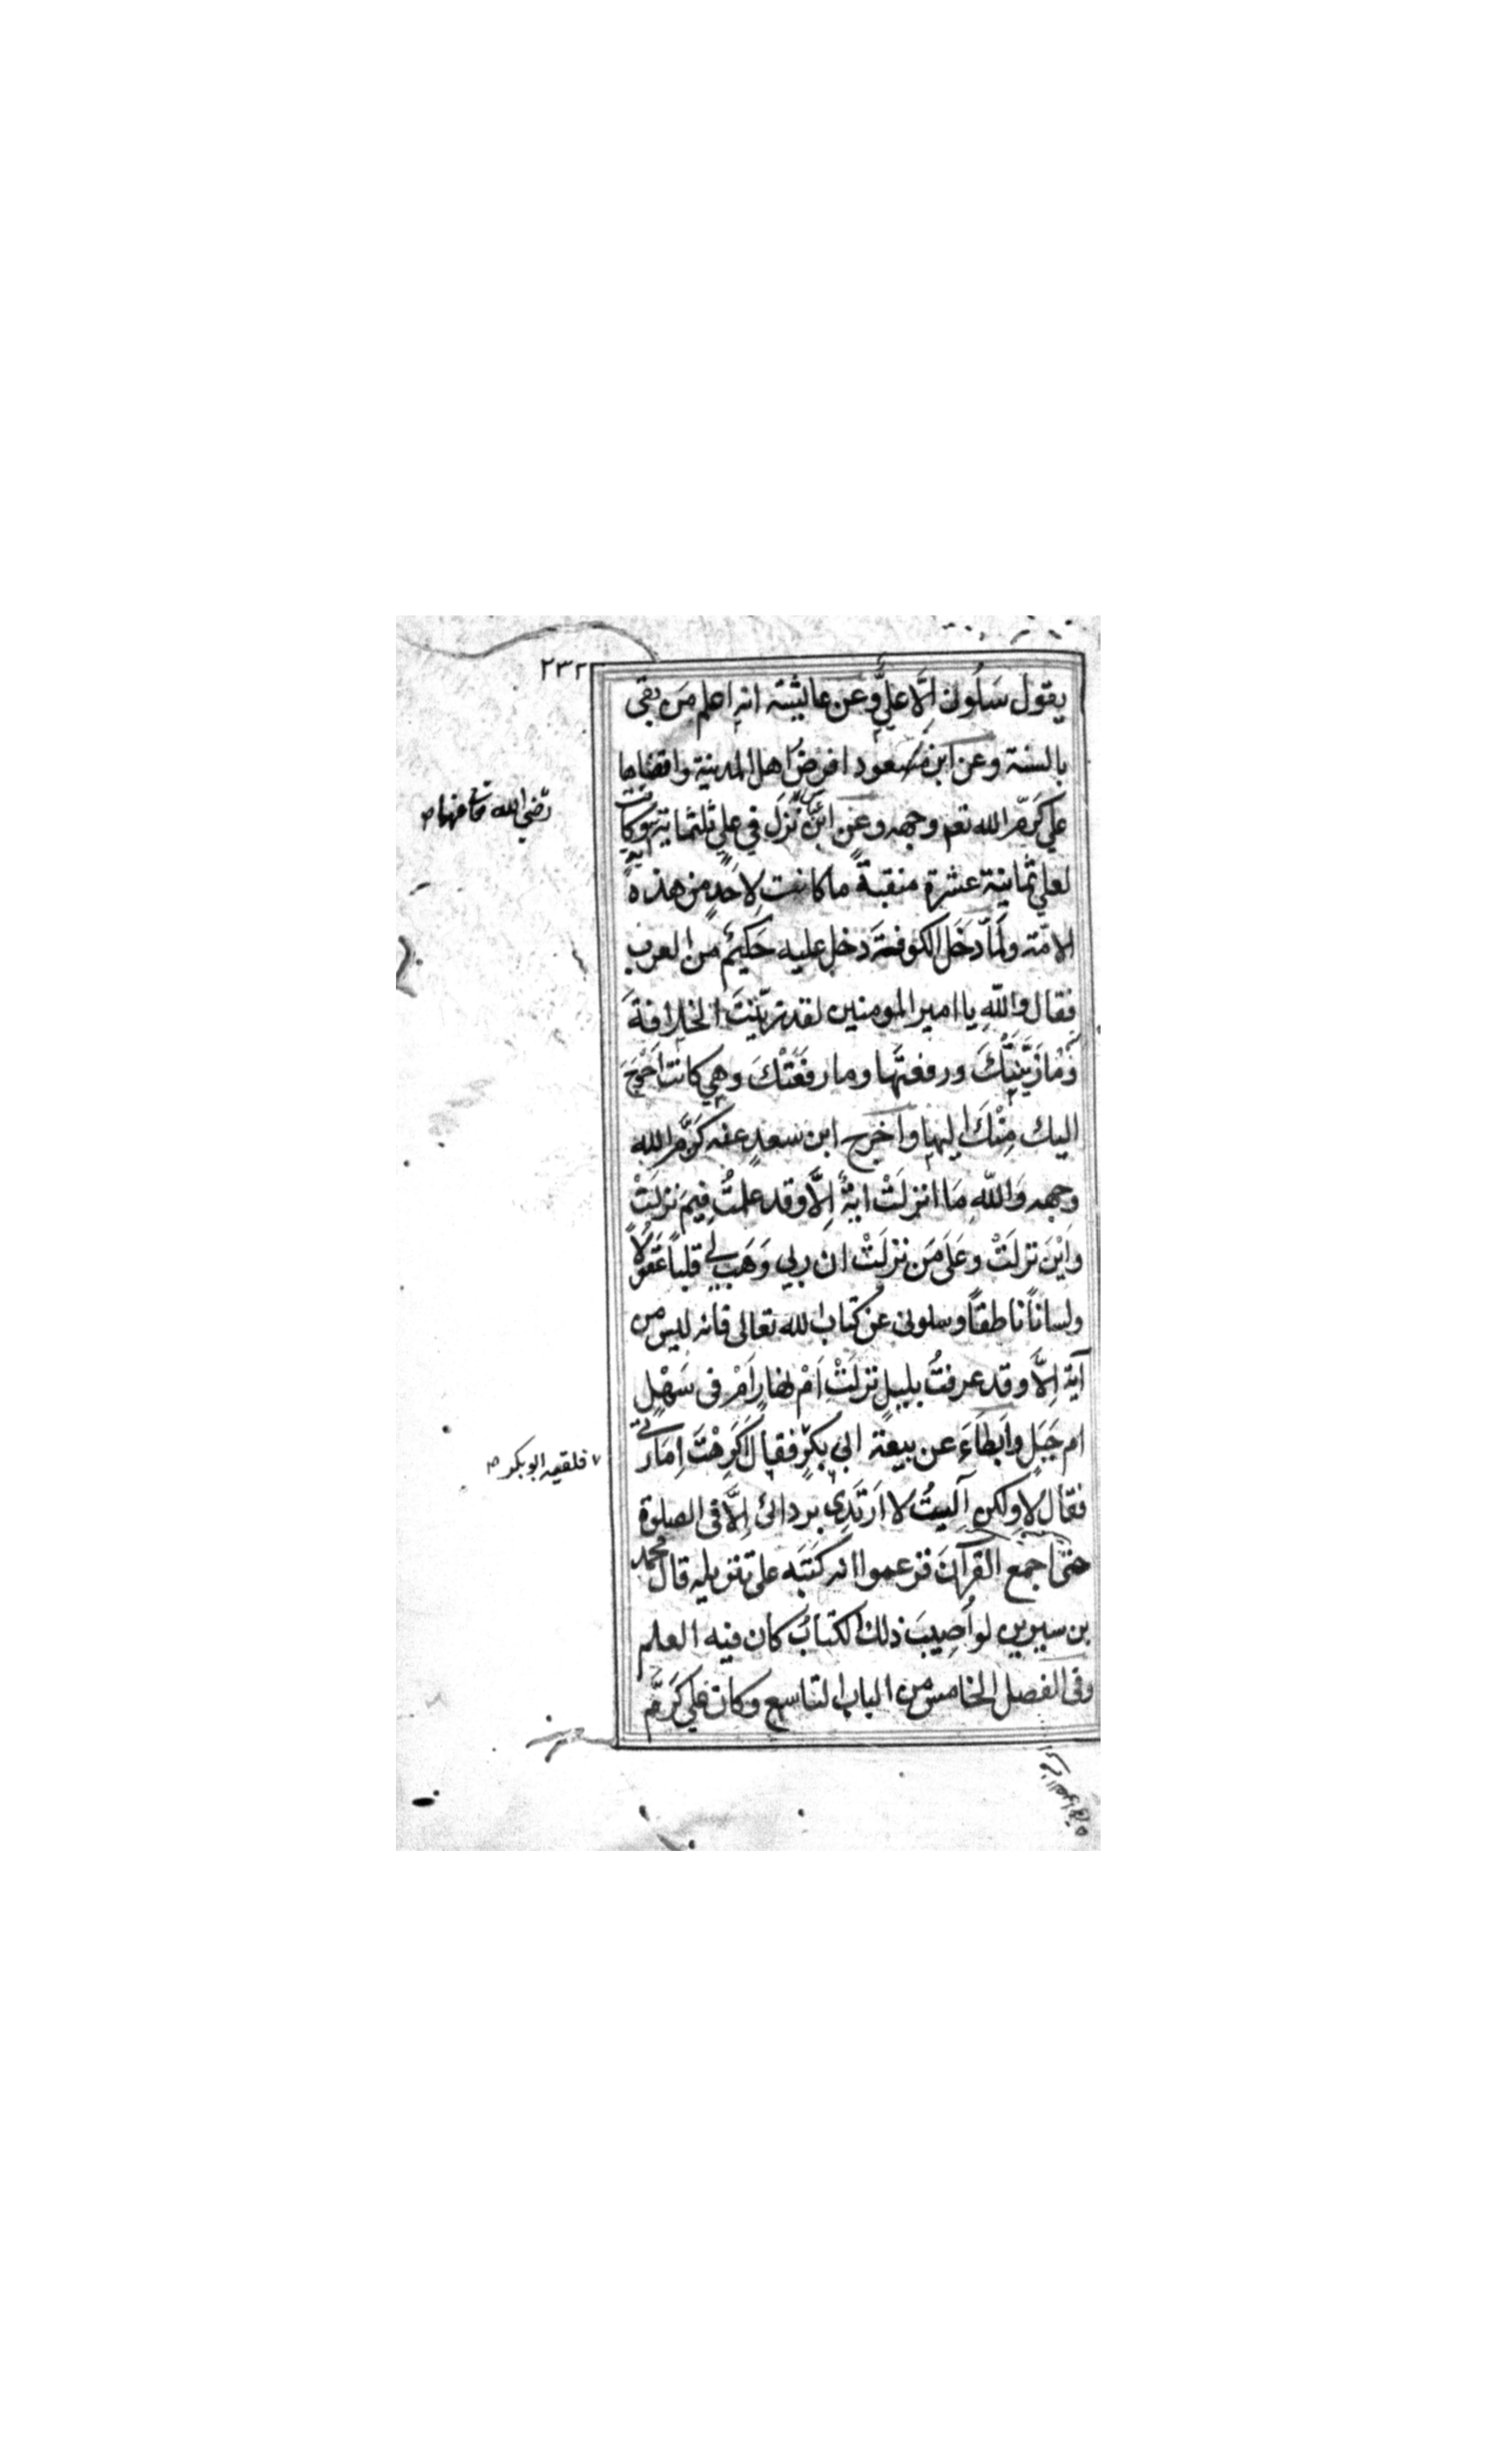 ٢٣٢
يقول سَلُوني اِلَّا عليٌّ وعن عايشة انه اعلم مَن بقي
بالسنة وعن ابن مسعود افرضُ اهل المدينة واقضاها
علي كَرَّمَ الله تعم وجهه وعن ابن نَزَلَ في علي ثلثماية وكانت
لعلي ثمانية عشرة منقبةً ما كانت لِاَحَدٍ من هذه
الامّة ولَمَّا دَخَلَ الكوفةَ دخل عليه حَكِيمٌ من العرب
فقال واللهِ يا امير المومنين لقد زيّنتَ الخلافةَ
وَمَا زَيَّنَتْكَ ورفعتَها وما رفَعَتْكَ وهي كانت اَحْوَجَ
اليك مِنْكَ اليها واَخرج ابن سعدٍ عنه كَرَّمَ الله
وجهه وَاللهِ مَا انزلَتْ ايةٌ اِلَّا وقد علمتُ فيمَ نزلَتْ
وَاَيْنَ نزلَتْ وعَلَى مَن نزلَتْ ان ربي وَهَبَ لي قلباً عَقُولًا
ولساناً ناطقاً وسلوني عن كتاب الله تعالى فانه ليس من
آية اِلَّا وقد عرفتُ بليلٍ نزلَتْ اَمْ نهارٍ اَمْ في سَهْلٍ
ام جَبَلٍ واَبطَاءَ عن بيعة ابي بكرٍ فقال اَكَرِهْتَ اِمَارَتي
فقال لا ولكن آليتُ لا اَرتَدِي بردائي اِلَّا في الصلوة
حتى اجمع القرآنَ فزعموا انه كتبَه على تنزيله قال محمد
بن سيرين لو اُصِيبَ ذلك الكتابُ كان فيه العلم
وفي الفصل الخامس من الباب التاسع وكان علي كَرَّمَ
رضي الله عنها
فلقيه ابو بكر